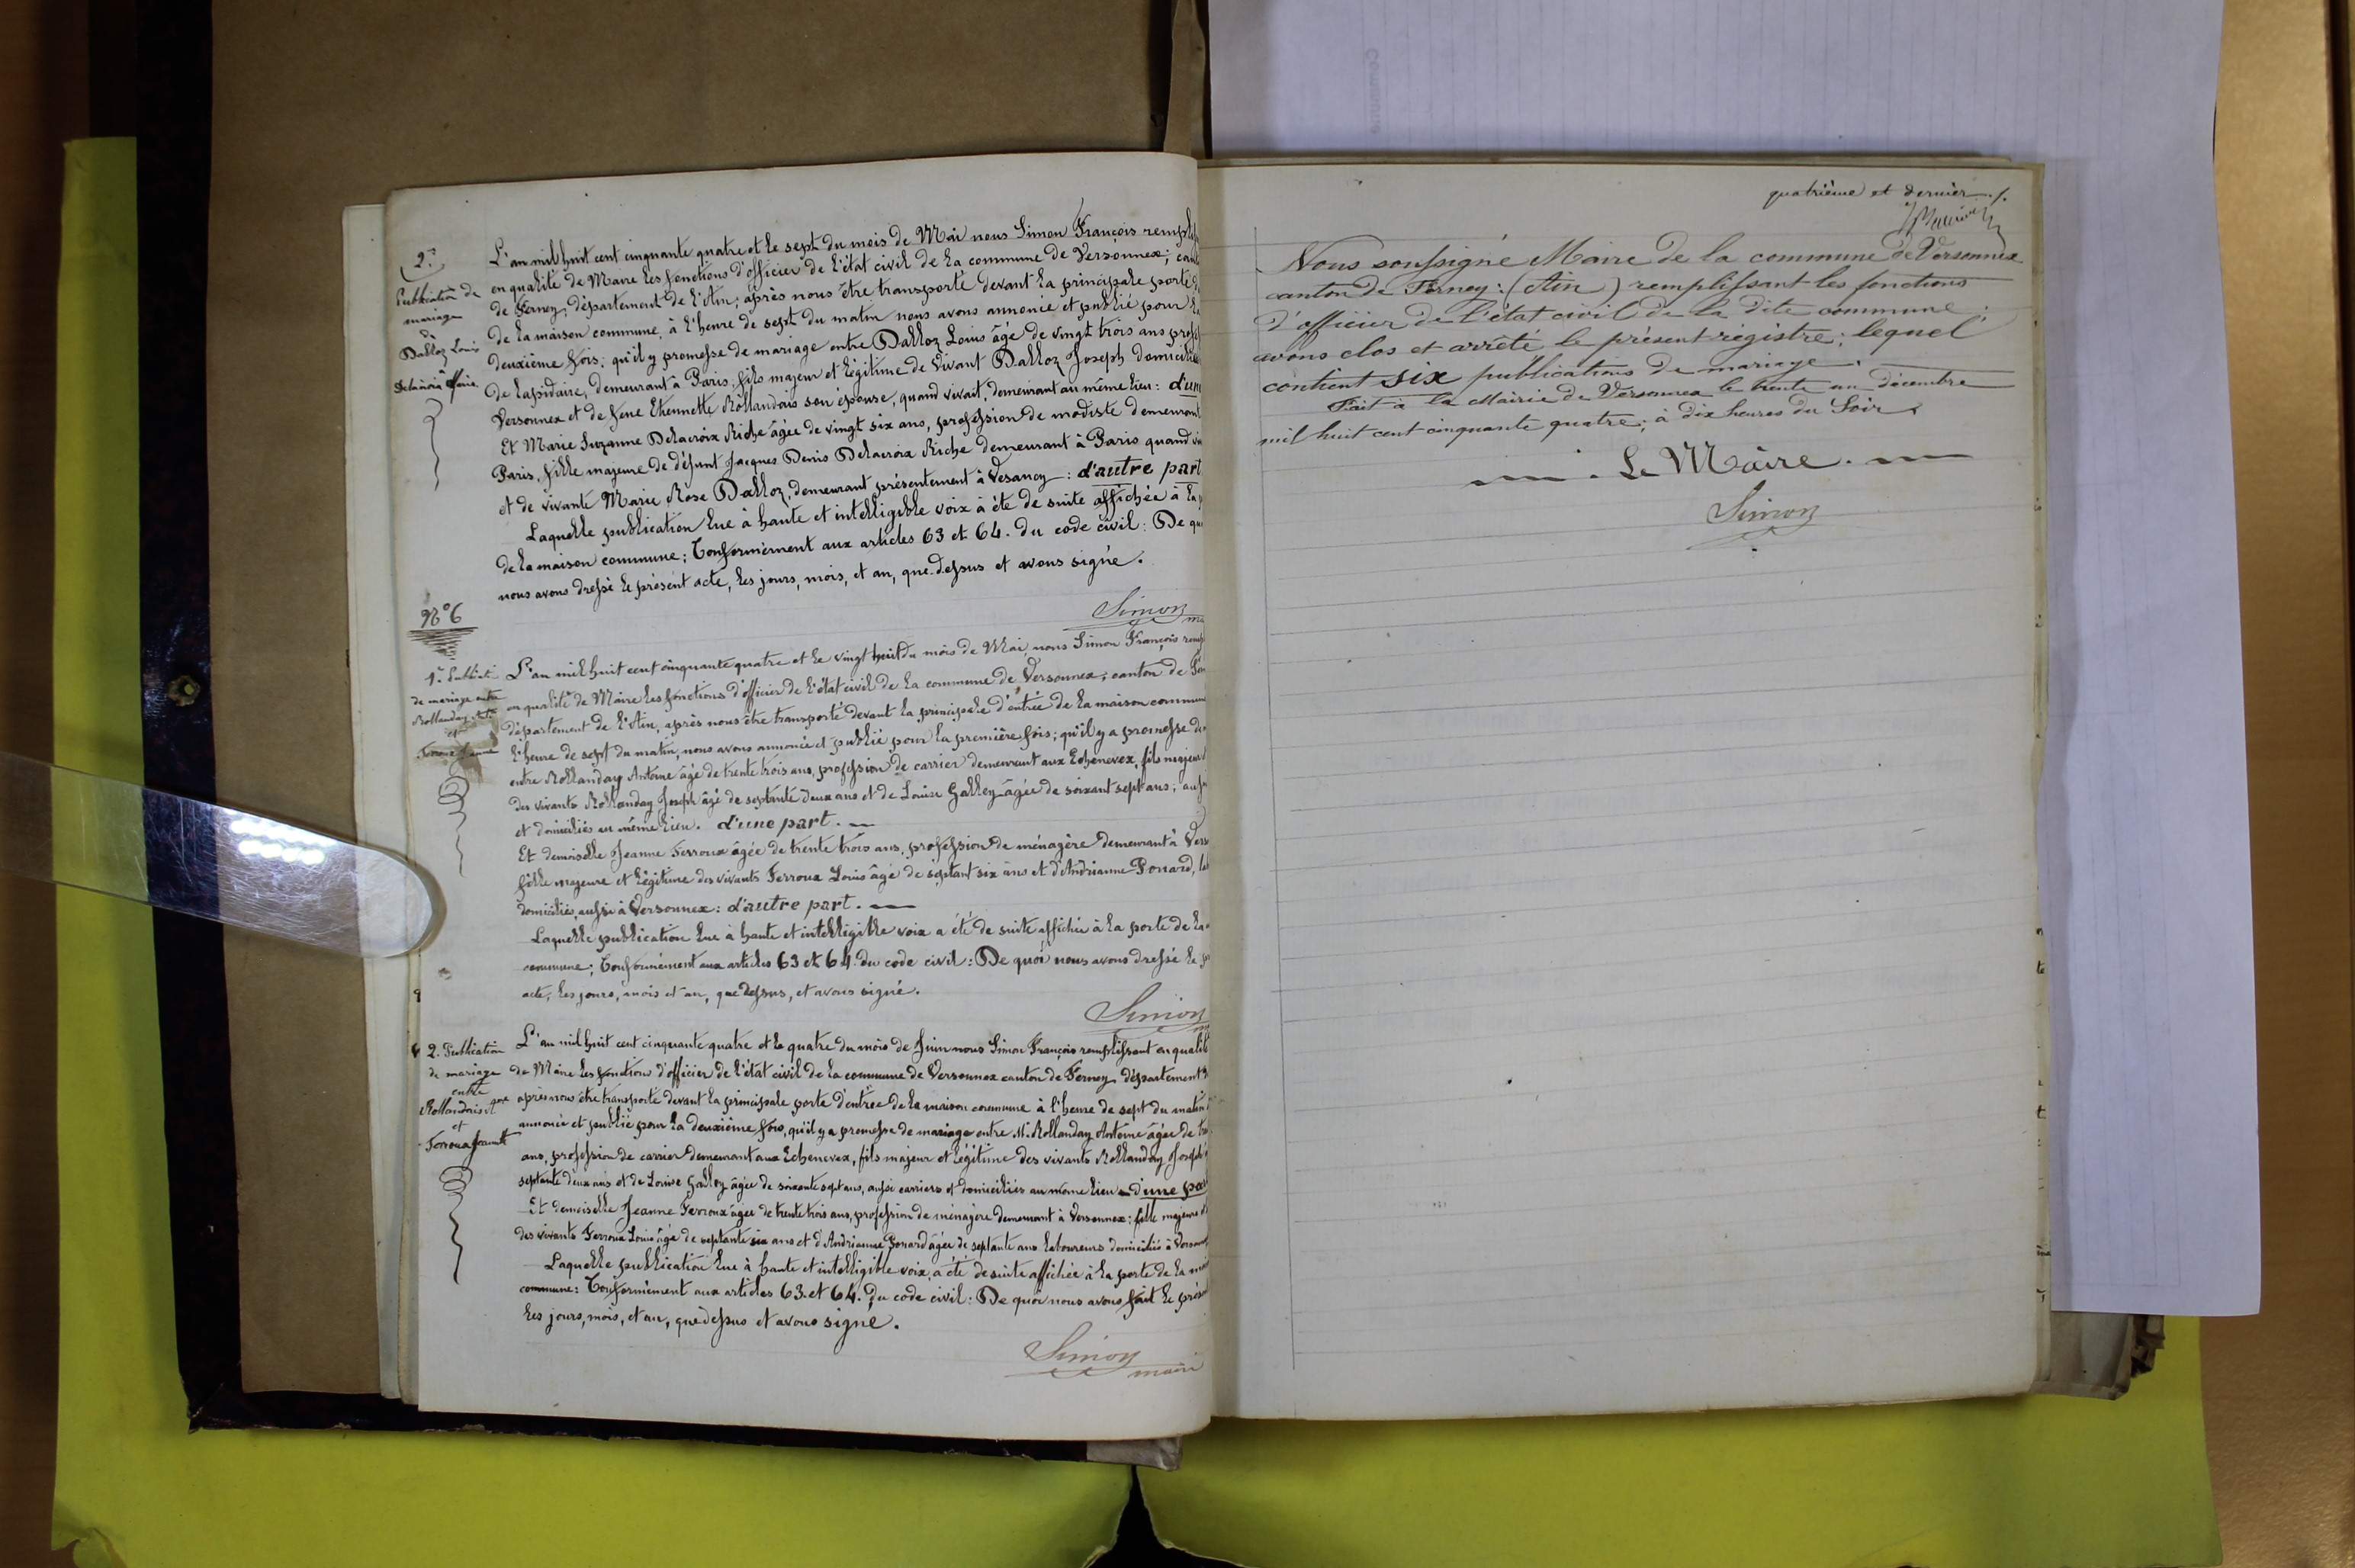 2.e
Publication de
mariage
de
Dalloz Louis
à
L'an mil huit cent cinquante quatre et le sept du mois de Mai nous Simon François
en qualité de Maire les fonctions d'officier de l'état civil de la commune de Versonnex;
de Ferney, département de l'Ain; après nous être transporté devant la principale porte
de la maison commune, à l'heure de sept du matin nous avons annoncé et publié pour
deuxième fois; qu'il y promesse de mariage entre Dalloz Louis âgé de vingt trois ans
de lapidaire, demeurant à Paris, fils majeur et légitime de vivant Dalloz Joseph
Versonnex et de feue Etiennette Rollandais son épouse, quand vivait, demeurant au même lieu: d'une
Et Marie Suzanne Delacroix Riche âgée de vingt six ans, profession de modiste demeurant
Paris, fille majeure de défunt Jacques Denis Delacroix Riche demeurant à Paris quand
et de vivante Marie Rose Dalloz, demeurant présentement à Vesancy: d'autre part
Laquelle publication lue à haute et intelligible voix à été de suite affichée à la
de la maison commune; Conformément aux articles 63 et 64. du code civil: De
nous avons dressé le présent acte, les jours, mois, et an, que dessus et avons signé.
Simon
N° 6
de mariage entre
Rollanday
et
L'an mil huit cent cinquante quatre et le vingt huit du mois de Mai, nous Simon François
en qualité de Maire les fonctions d'officier de l'état civil de la commune de Versonnex; canton de
département de l'Ain, après nous être transporté devant la principale d'entrée de la maison commune
l'heure de sept du matin, nous avons annoncé et publié pour la première fois; qu'il y a promesse de
entre Rollanday Antoine âgé de trente trois ans, profession de carrier demeurant aux Echenevex, fils majeur
des vivants Rollanday Joseph âgé de septante deux ans et de Louise Galley âgée de soixant sept ans;
et domiciliés au même lieu. d'une part.
Et demoiselle Jeanne Ferroux âgée de trente trois ans, profession de ménagère demeurant à
fille majeure et légitime des vivants Ferroux Louis âgé de septant six ans et d'Andrianne Ponard,
domiciliés, aussi à Versonnex: d'autre part.
Laquelle publication lue à haute et intelligible voix a été de suite affichée à la porte de la
commune; Conformément aux articles 63 et 64. du code civil: De quoi nous avons dressé le
acte, les jours, mois et an, que dessus, et avons signé.
Simon
2. Publication
de mariage
entre
et
L'an mil huit cent cinquante quatre et le quatre du mois de Juin nous Simon François remplissant en qualité
de Maire les fonctions d'officier de l'état civil de la commune de Versonnex canton de Ferney, département
après nous être transporté devant la principale porte d'entrée de la maison commune à l'heure de sept du matin
annoncé et publié pour la deuxième fois, qu'il y a promesse de mariage entre M. Rollanday Antoine âgée de
ans, profession de carrier demeurant aux Echenevex, fils majeur et légitime des vivants Rollanday Joseph
septante deux ans et de Louise Galley âgée de soixante sept ans, aussi carriers et domiciliés au même lieu d'une part
Et demoiselle Jeanne Ferroux âgée de trente trois ans, profession de ménagère demeurant à Versonnex: fille majeure
des vivants Ferroux Louis âgé de septante six ans et d'Andrianne Ponard âgée de septante ans laboureurs domiciliés à
Laquelle publication lue à haute et intelligible voix, a été de suite affichée à la porte de la
commune: Conformément aux articles 63. et 64. du code civil: De quoi nous avons fait le
les jours, mois, et an, que dessus et avons signé.
Simon
maire
quatrième et dernier
Nous soussigné Maire de la commune de Versonnex
canton de Ferney: (Ain) remplissant les fonctions
d'officier de l'état civil de la dite commune;
avons clos et arrêté le présent régistre; lequel
contient six publications de mariage.
Fait à la Mairie de Versonnex le trente un décembre
mil huit cent cinquante quatre; à dix heures du Soir.
Le Maire.
Simon